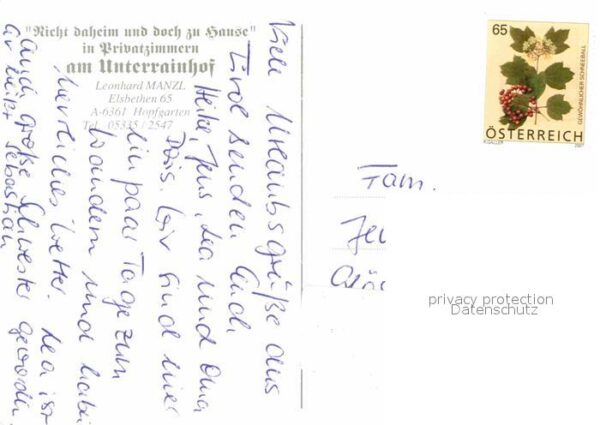 "Nicht daheim und doch zu Hause"
in Privatzimmern
am Unterrainhof
Leonhard MANZL
Elsbethen 65
A-6361 Hopfgarten
Tel. 05335 / 2547
Viele Urlaubsgrüße aus
Tirol senden Euch
Heike, Jens, Lea und Oma
Wir sind hier
ein paar Tage zum
Wandern und haben
herrliches Wetter. Lea ist
auch große Schwester geworden,
er heißt Sebastian
65
GEWÖHNLICHER SCHNEEBALL
ÖSTERREICH
2007
Fam.
privacy protection
Datenschutz